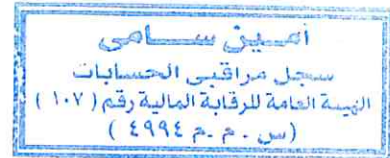 أمين ســـامى
سجل مراقبى الحسابات
الهيئة العامة للرقابة المالية رقم ( ١٠٧ )
( س . م . م ٤٩٩٤ )